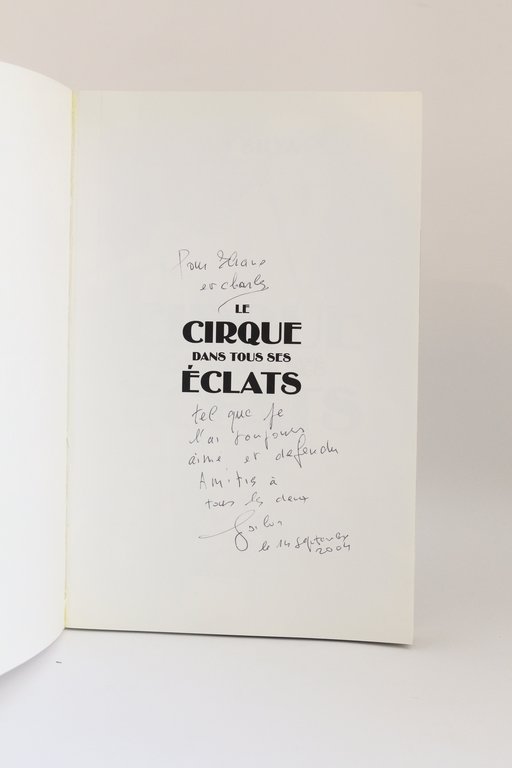 Pour Eliane
et Charles
LE
CIRQUE
DANS TOUS SES
ÉCLATS
tel que je
l'ai toujours
aimé et défendu
Amitiés à
tous les deux
le 14 septembre
2004